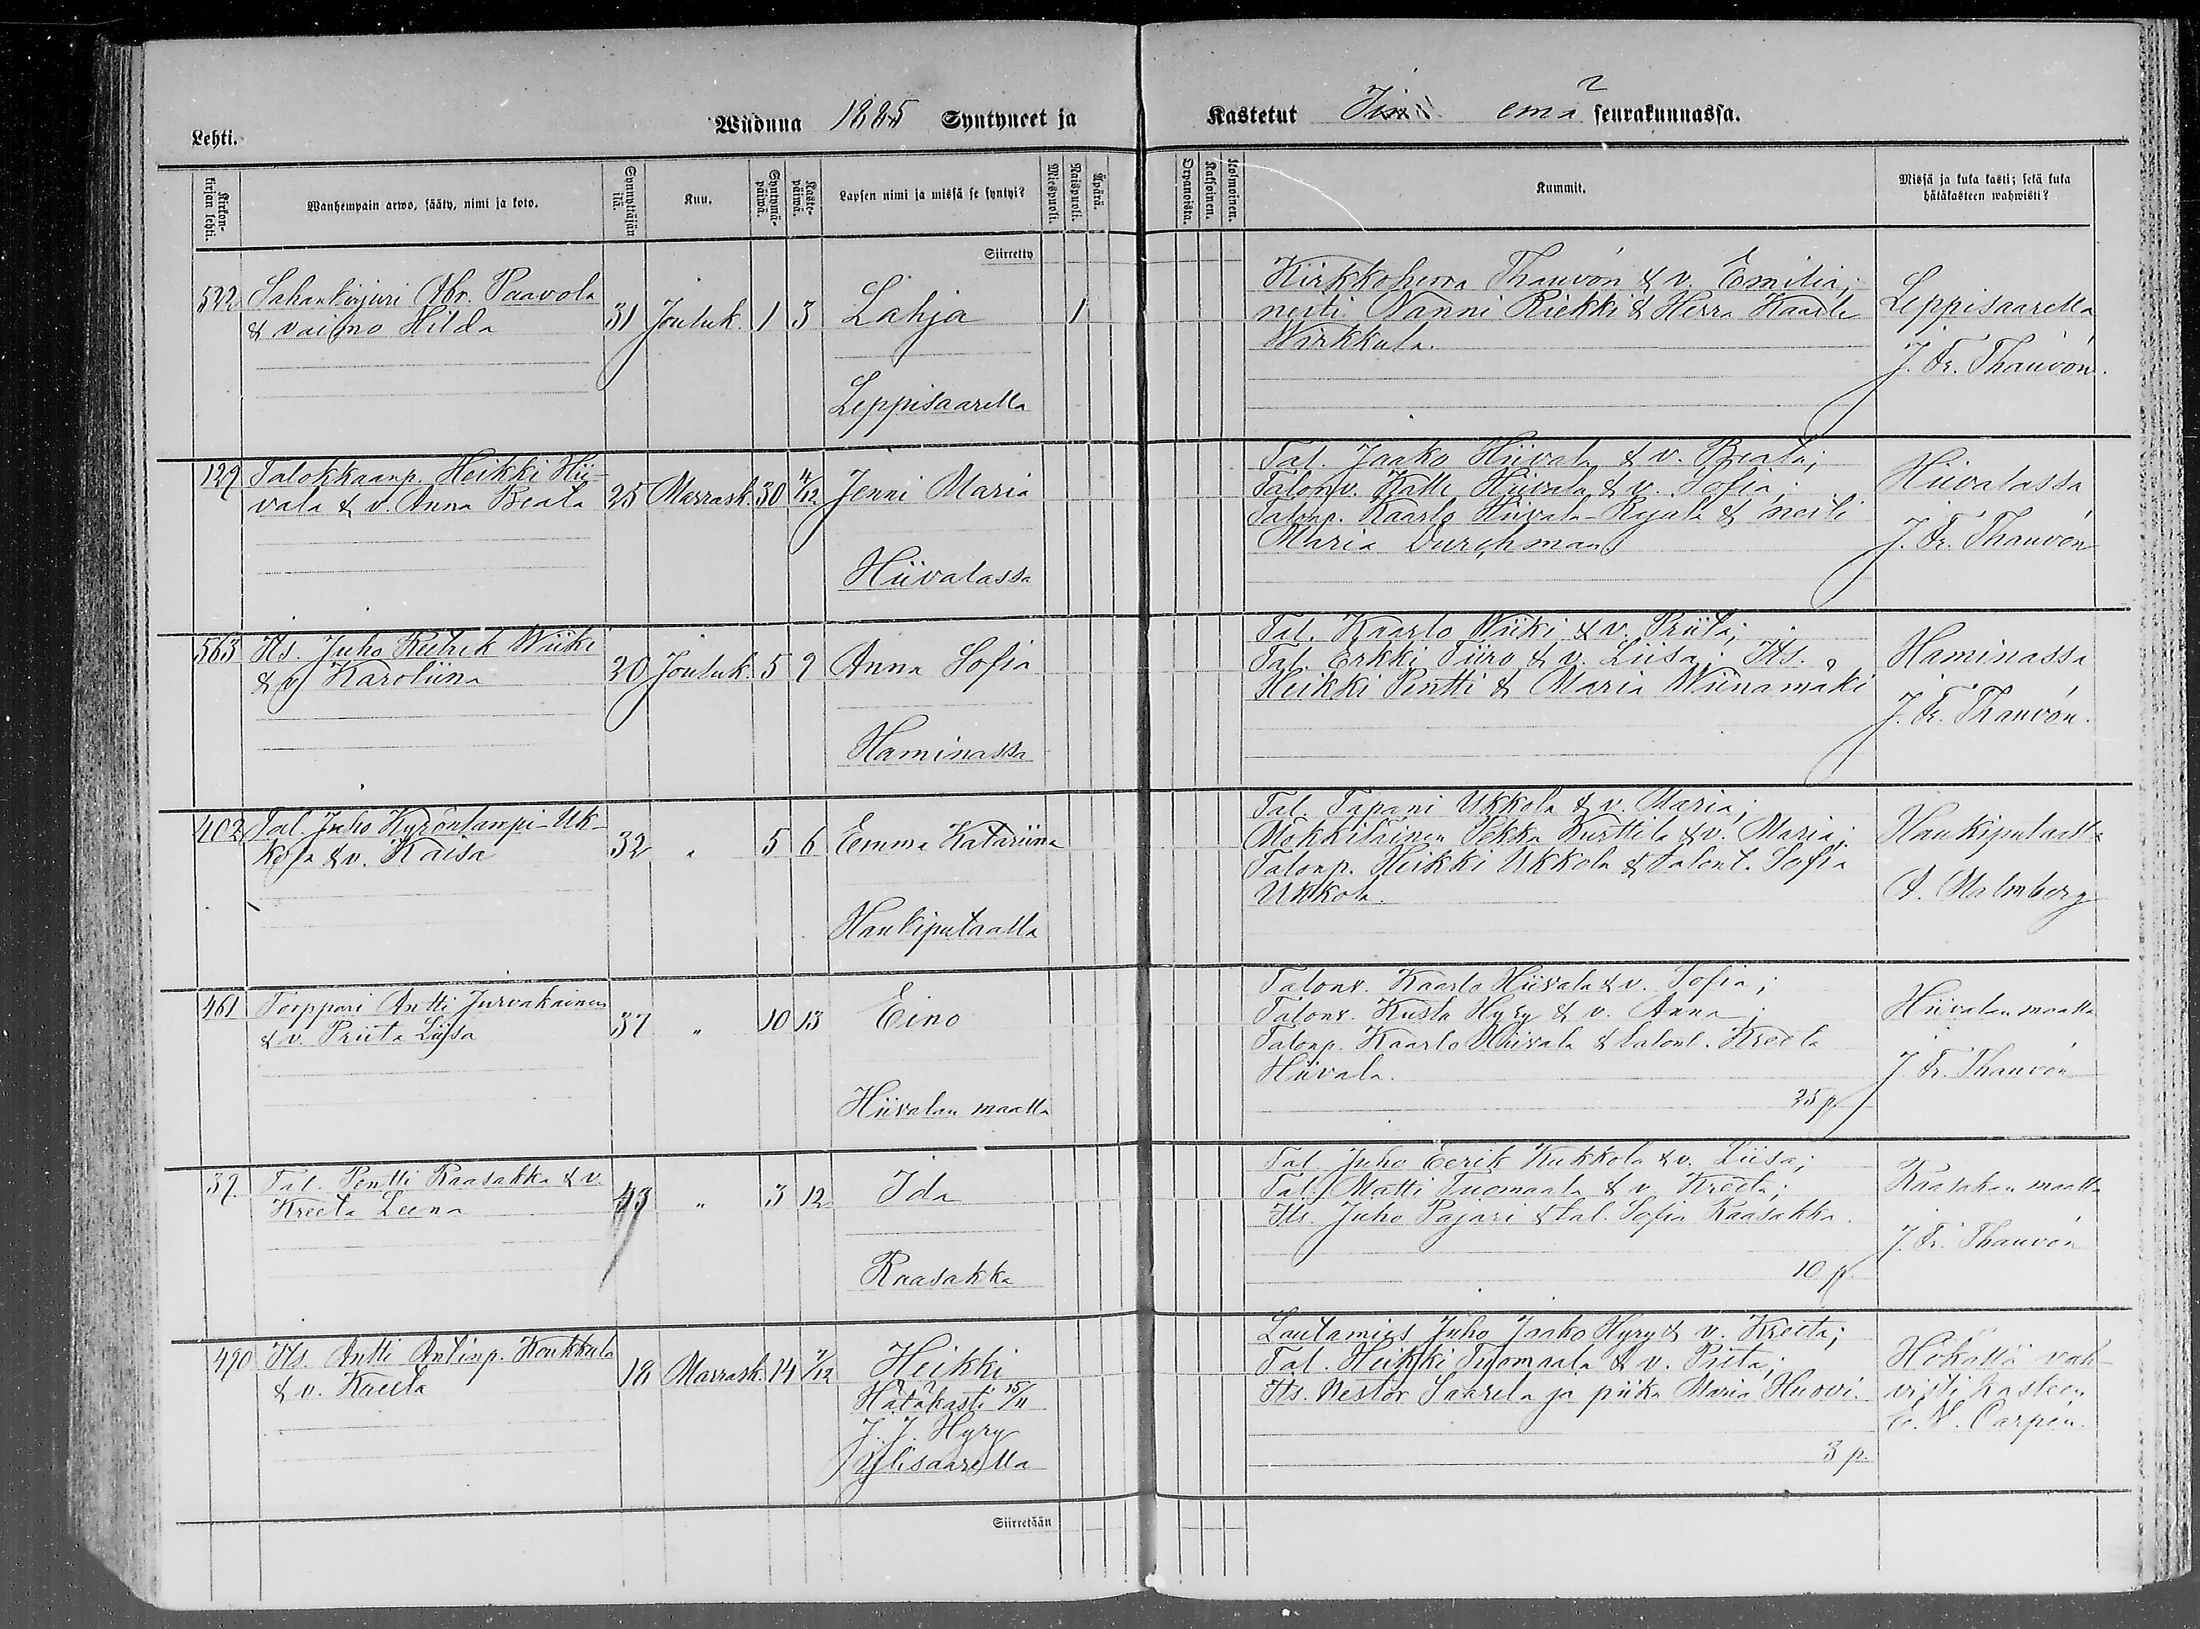 Lehti.
Wuonna 1885 Syntyneet ja
Kastetut Iin emä seurakunnassa.
Kirkonkirjan lehti.
Wanhempain arwo, sääty, nimi ja koto.
Synnyttäjän ikä.
Kuu.
Syntymäpäiwä.
Kastepäiwä.
Lapsen nimi ja missä se syntyi?
Miespuoli.
Naispuoli.
Äpärä.
Kaksoinen.
Kolmoinen.
Kummit.
Missä ja kuka kasti; sekä kuka
hätäkasteen wahwisti?
Siirretty
522 Sahankirjuri Abr. Paavola
& vaimo Hilda
31 Jouluk. 1 3 Lahja
Leppisaarella
1
Kirkkoherra Thauvón & v. Emilia;
neiti Nanni Riekki & Herra Kaarle
Wirkkula.
Leppisaarella
J. Fr. Thauvón.
129 Talokkaanp. Heikki Hii-
vala & v. Anna Beata
25 Marrask. 30 4/12 Jenni Maria
Hiivalassa
Tal. Jaako Hiivala & v. Beata;
Talonv. Kalle Hiivala & v. Sofia;
Talonp. Kaarlo Hiivala-Rajala & neiti
Maria Durchman
Hiivalassa
J. Fr. Thauvón
563 Its. Juho Retrik Wiiki
& v. Karoliina
20 Jouluk. 5 9 Anna Sofia
Haminassa
Tal. Kaarlo Wiiki & v. Priita;
Tal. Erkki Tiiro & v. Liisa; Its.
Heikki Pentti & Maria Wiinamäki
Haminassa
J. Fr. Thauvón.
402 Tal. Juho Kyröntampi-Uk-
kola & v. Kaisa
32 " 5 6 Emma Katariina
Haukiputaalla
Tal. Tapani Ukkola & v. Maria;
Mökkiläinen Pekka Kurttila & v. Maria;
Talonp. Heikki Ukkola & talont. Sofia
Ukkola.
Haukiputaalla
A. Malmberg
461 Torppari Antti Jurvakainen
& v. Priita Liisa
37 " 10 13 Eino
Hiivalan maalla
Talonv. Kaarlo Hiivala & v. Sofia;
Talonv. Kusta Hyry & v. Anna;
Talonp. Kaarlo Hiivala & talont. Kreeta
Hiivala.
25 p.
Hiivalan maalla
J. Fr. Thauvón
39 Tal. Pentti Raasakka & v.
Kreeta Leena
43 " 3 12 Ida
Raasakka
Tal. Juho Eerik Kukkola & v. Liisa;
Tal. Matti Tuomaala & v. Kreeta;
Its. Juho Pajari & tal. Sofia Raasakka.
10 p.
Raasakan maalla
J. Fr. Thauvón
490 Its. Antti Antinp. Konkkula
& v. Kreeta
18 Marrask. 14 7/12 Heikki
Hätäkasti 15/11
J. J. Hyry
Ylisaarella
Lautamies Juho Jaako Hyry & v. Kreeta;
Tal. Heikki Tuomaala & v. Priita;
Its. Nestor Saarela ja piika Maria Huovi.
3 p.
vah-
visti kasteen
Carpén.
Siirretään